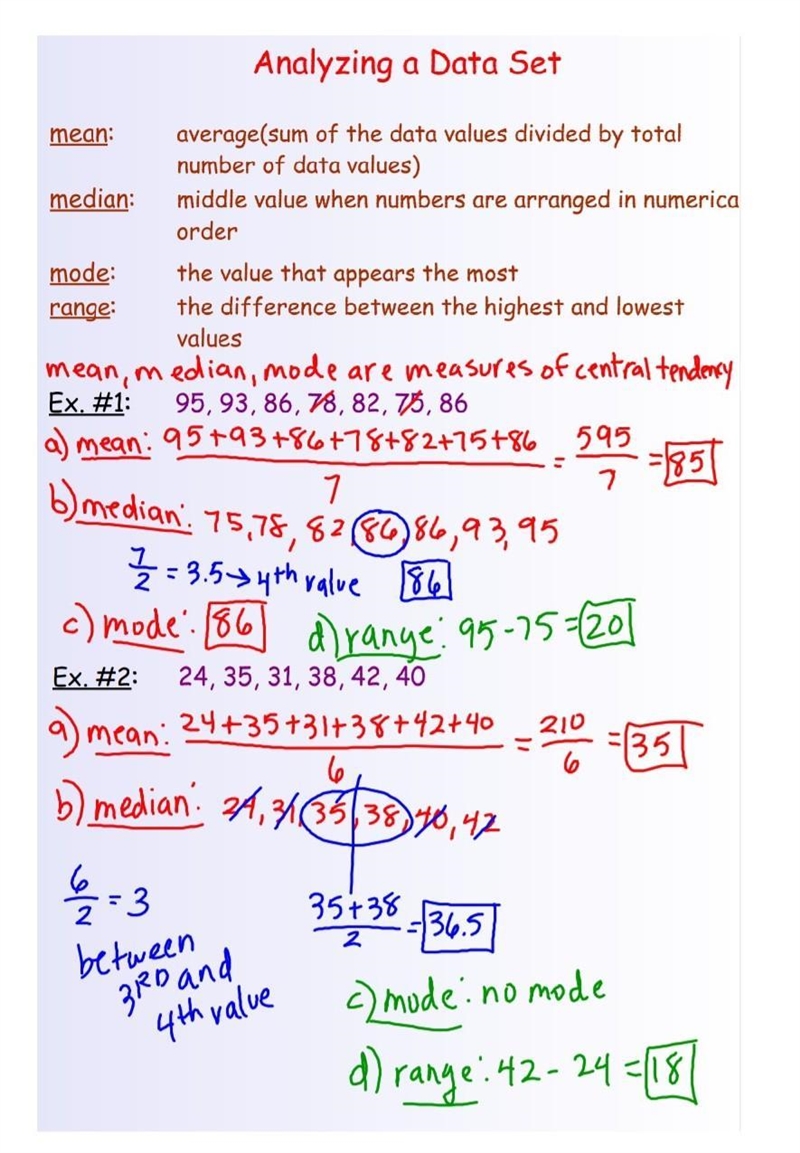 Analyzing a Data Set
mean: average(sum of the data values divided by total
number of data values)
median: middle value when numbers are arranged in numerica
order
mode: the value that appears the most
range: the difference between the highest and lowest
values
mean, median, mode are measures of central tendency
Ex. #1: 95, 93, 86, 78, 82, 75, 86
a) mean: 95+93+86+78+82+75+86 = 595 = 85
7 7
b) median: 75, 78, 82 86, 86, 93, 95
7/2 = 3.5 → 4th value 86
c) mode: 86 d) range: 95-75 = 20
Ex. #2: 24, 35, 31, 38, 42, 40
a) mean: 24+35+31+38+42+40 = 210 = 35
6 6
b) median: 24, 31, 35, 38, 40, 42
6/2 = 3 35+38/2 = 36.5
between
3RD and
4th value
c) mode: no mode
d) range: 42 - 24 = 18